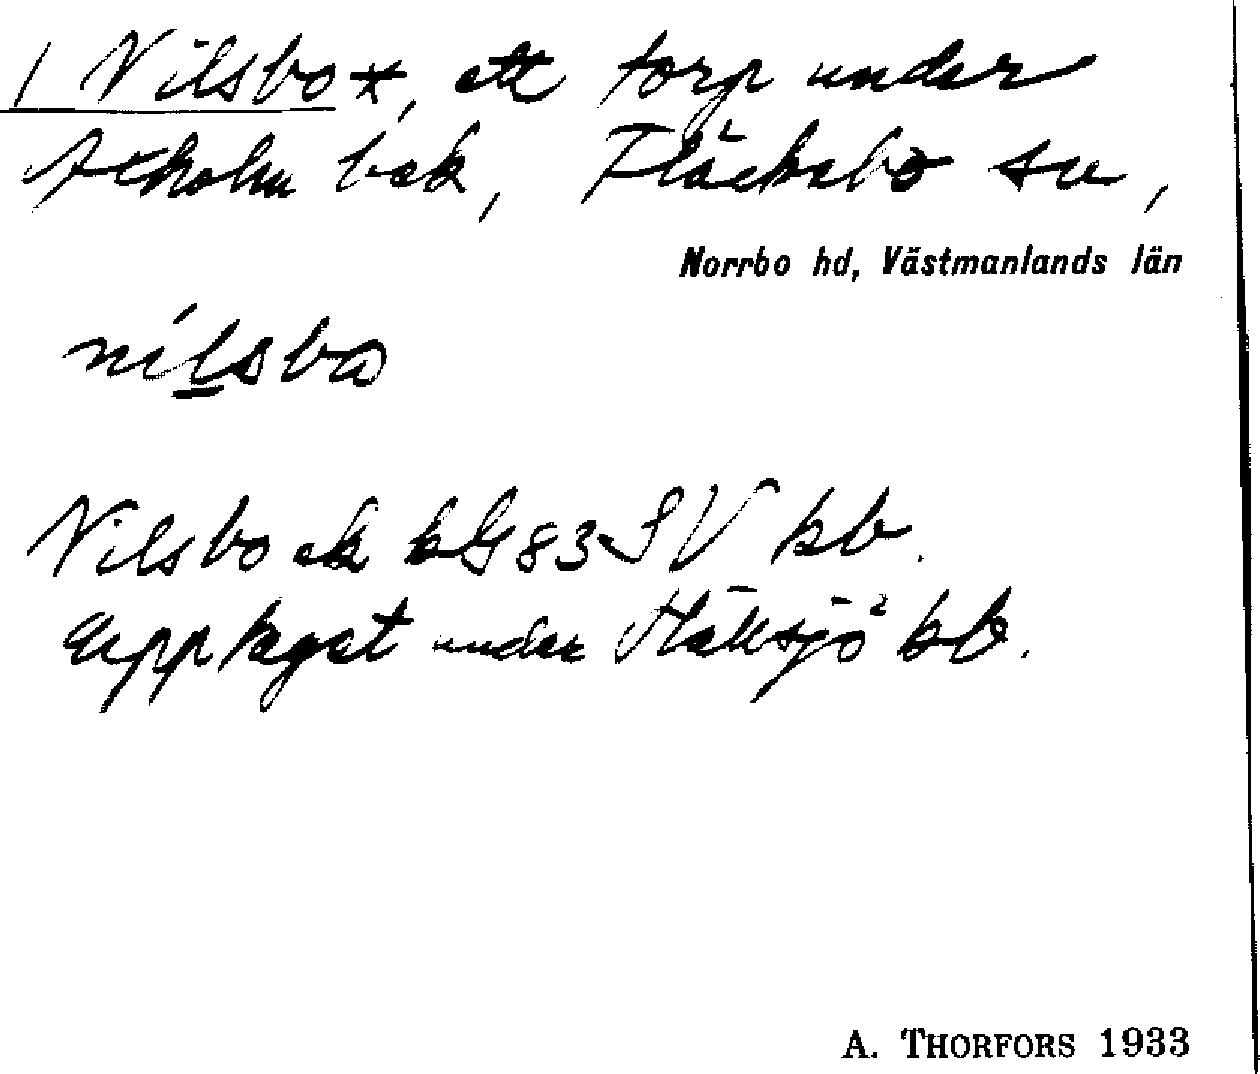 1 Nilsbo *, ett torp under
bek, Fläckebo sn,
Norrbo hd, Västmanlands län
nilsbo
Nilsbo ek kG83SV kb.
Upptaget under kb.
A. THORFORS 1933